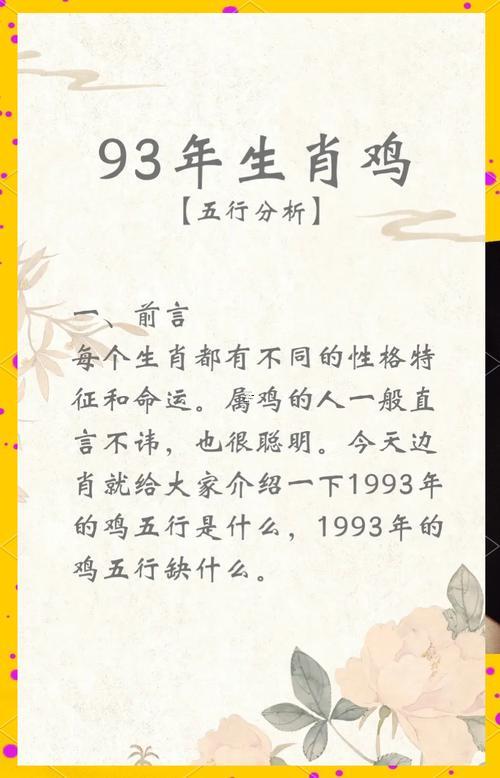 93年生肖鸡
【五行分析】
一、前言
每个生肖都有不同的性格特
征和命运。属鸡的人一般直
言不讳，也很聪明。今天边
肖就给大家介绍一下1993年
的鸡五行是什么，1993年的
鸡五行缺什么。